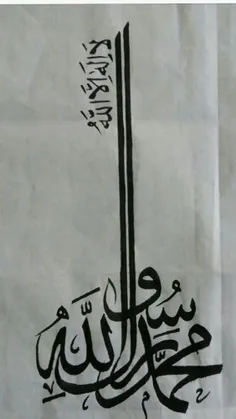 لَا إِلَهَ إِلَّا اللَّهُ
محمد رسول اللهُ